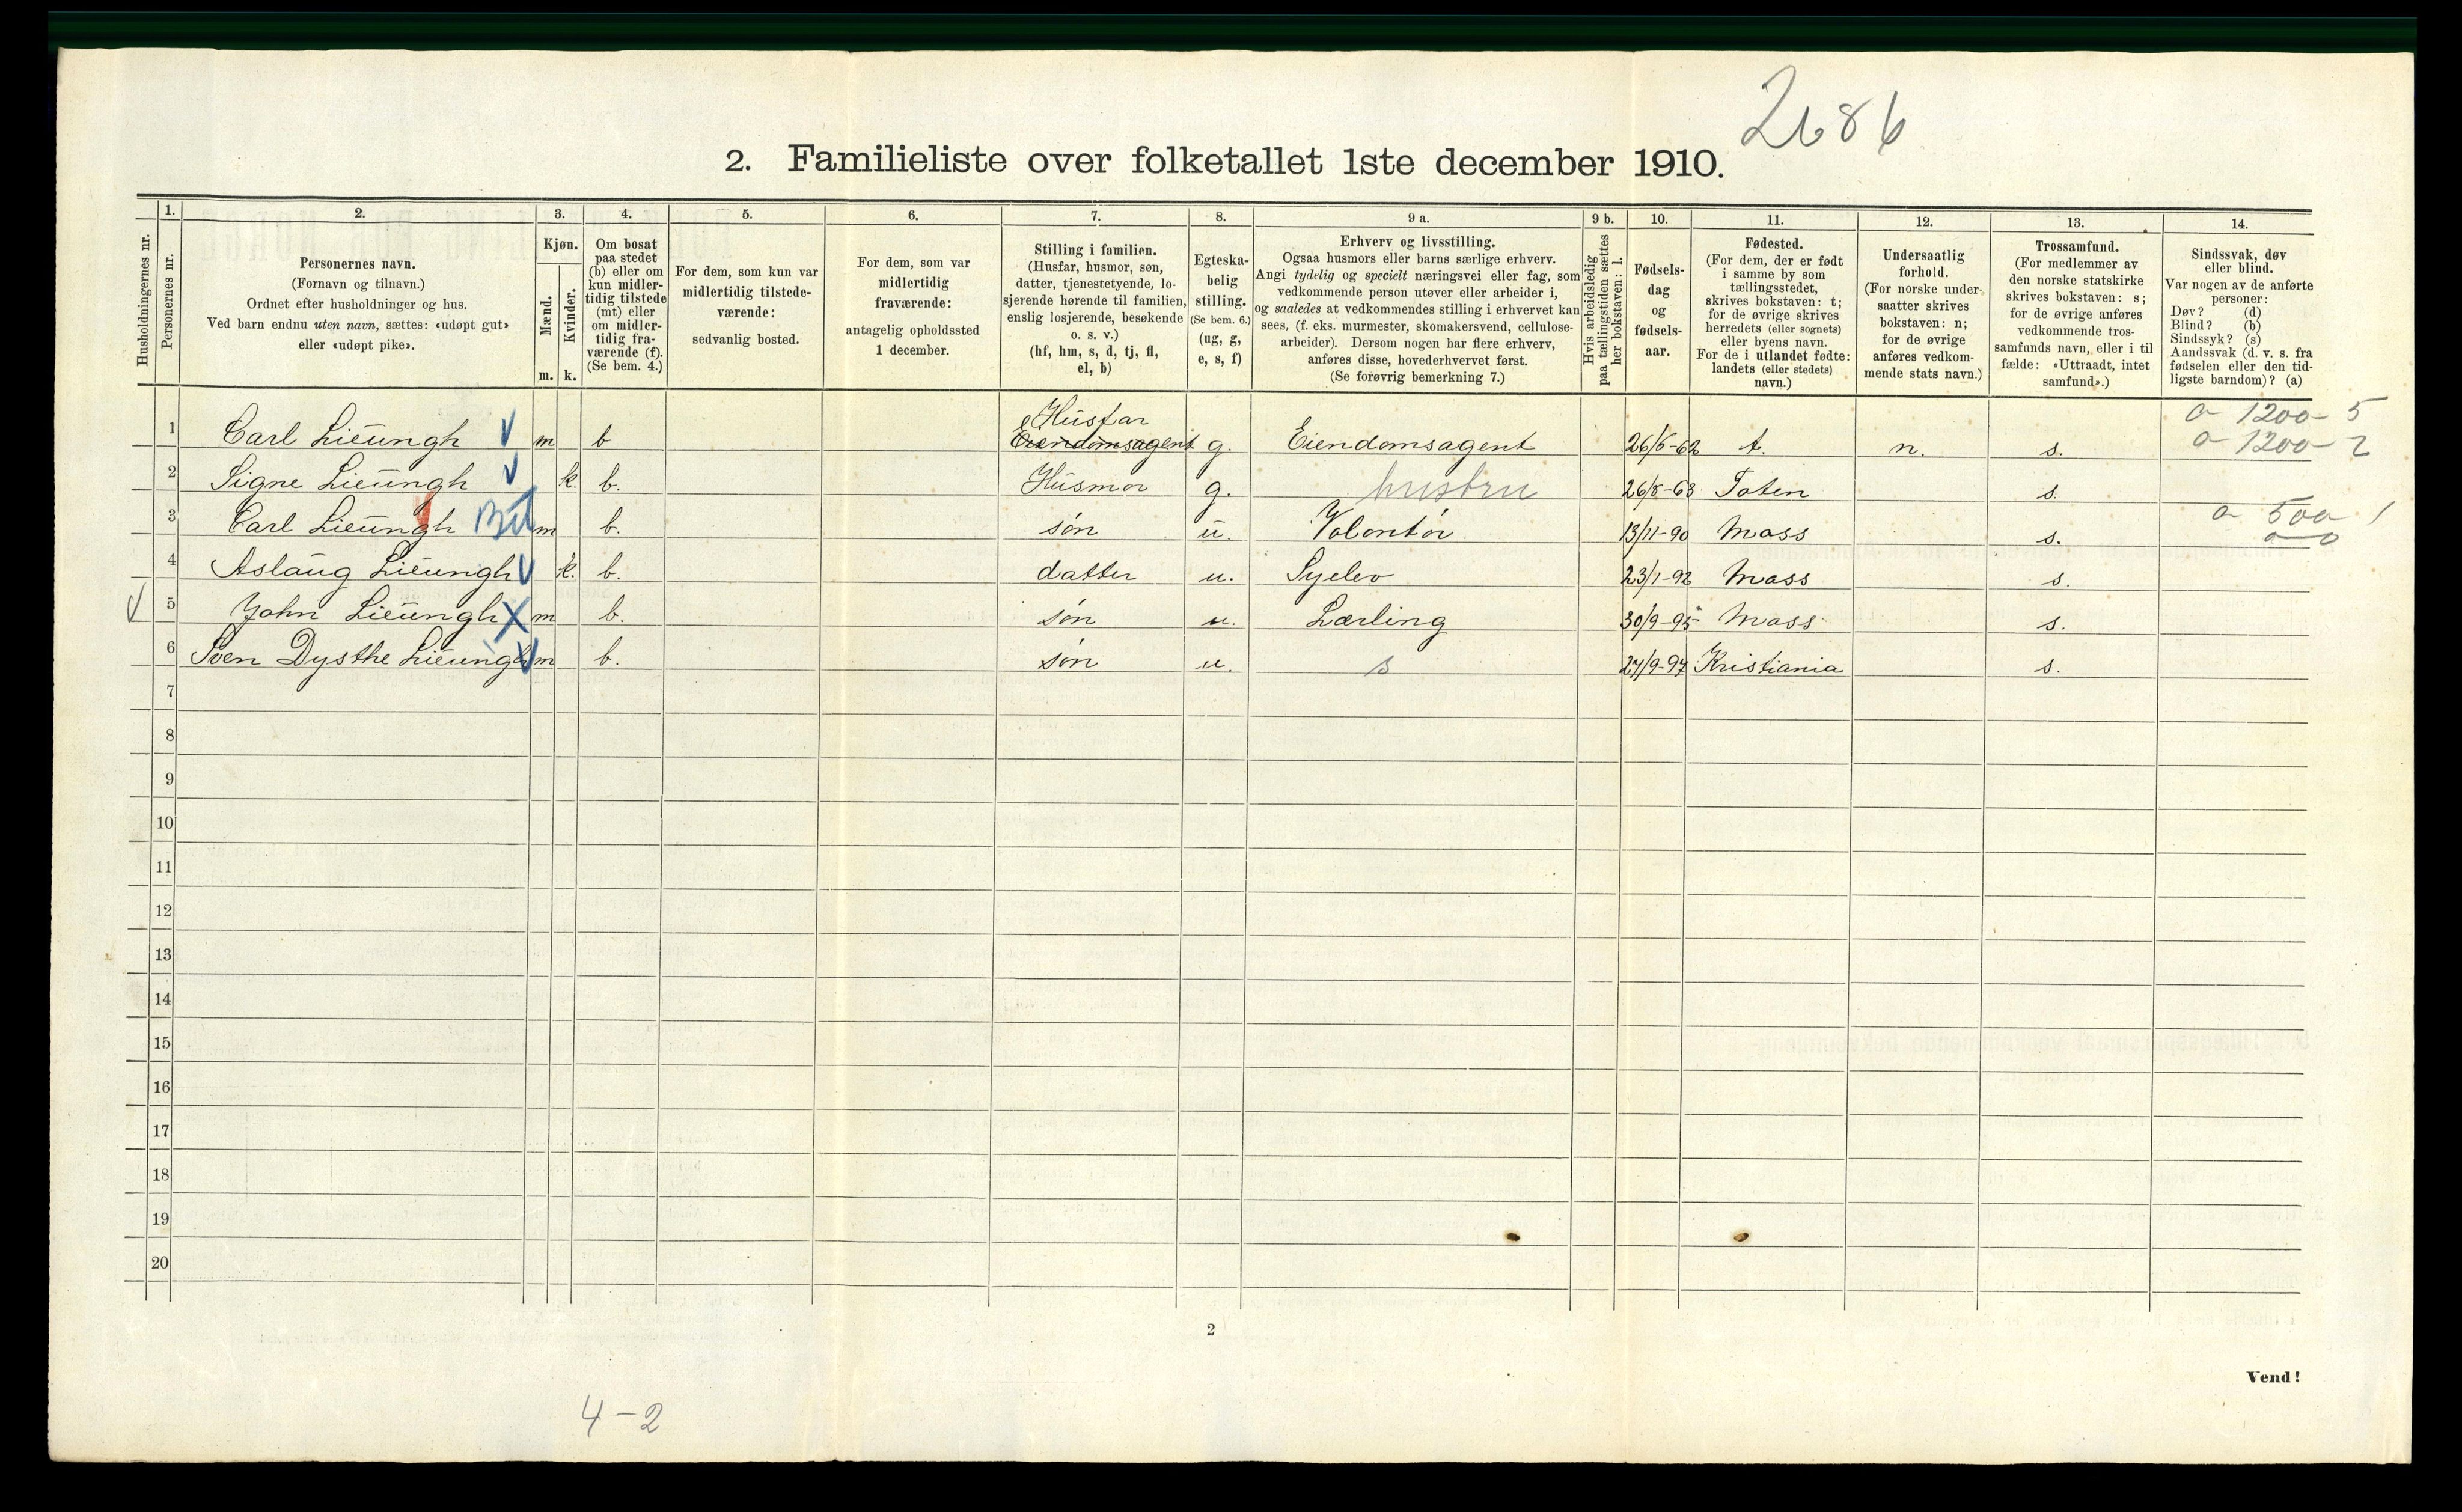 2686
2. Familieliste over folketallet 1ste december 1910.
Husholdningernes nr.
1. Personernes nr.
2. Personernes navn. (Fornavn og tilnavn.) Ordnet efter husholdninger og hus. Ved barn endnu uten navn, sættes: «udøpt gut» eller «udøpt pike».
3. Kjøn. Mænd. m. Kvinder. k.
4. Om bosat paa stedet (b) eller om kun midlertidig tilstede (mt) eller om midlertidig fraværende (f). (Se bem. 4.)
5. For dem, som kun var midlertidig tilstedeværende: sedvanlig bosted.
6. For dem, som var midlertidig fraværende: antagelig opholdssted 1 december.
7. Stilling i familien. (Husfar, husmor, søn, datter, tjenestetyende, losjerende hørende til familien, enslig losjerende, besøkende o. s. v.) (hf, hm, s, d, tj, fl, el, b)
8. Egteskabelig stilling. (Se bem. 6.) (ug, g, e, s, f)
9 a. Erhverv og livsstilling. Ogsaa husmors eller barns særlige erhverv. Angi tydelig og specielt næringsvei eller fag, som vedkommende person utøver eller arbeider i, og saaledes at vedkommendes stilling i erhvervet kan sees, (f. eks. murmester, skomakersvend, cellulosearbeider). Dersom nogen har flere erhverv, anføres disse, hovederhvervet først. (Se forøvrig bemerkning 7.)
9 b. Hvis arbeidsledig paa tællingstiden sættes her bokstaven: l.
10. Fødselsdag og fødselsaar.
11. Fødested. (For dem, der er født i samme by som tællingsstedet, skrives bokstaven: t; for de øvrige skrives herredets (eller sognets) eller byens navn. For de i utlandet fødte: landets (eller stedets) navn.)
12. Undersaatlig forhold. (For norske undersaatter skrives bokstaven: n; for de øvrige anføres vedkommende stats navn.)
13. Trossamfund. (For medlemmer av den norske statskirke skrives bokstaven: s; for de øvrige anføres vedkommende trossamfunds navn, eller i tilfælde: «Uttraadt, intet samfund».)
14. Sindssvak, døv eller blind. Var nogen av de anførte personer: Døv? (d) Blind? (b) Sindssyk? (s) Aandssvak (d. v. s. fra fødselen eller den tidligste barndom)? (a)
1 Carl Lieungh m b Husfar Eiendomsagent g. Eiendomsagent 26/6-62 t. n. s. 1200 - 5
1200 - 2
2 Signe Lieungh k. b. Husmor g. hustru 26/8-63 Toten s.
3 Carl Lieungh m b. søn u. Volontør 13/11-90 Moss s. 500 1
4 Aslaug Lieungh k. b. datter u. Syelev 23/1-92 Moss s.
5 John Lieungh m b. søn u. Lærling 30/9-95 Moss s.
6 Sven Dysthe Lieungh m b. søn u. s 27/9-97 Kristiania s.
7
8
9
10
11
12
13
14
15
16
17
18
19
20
2
Vend!
4-2